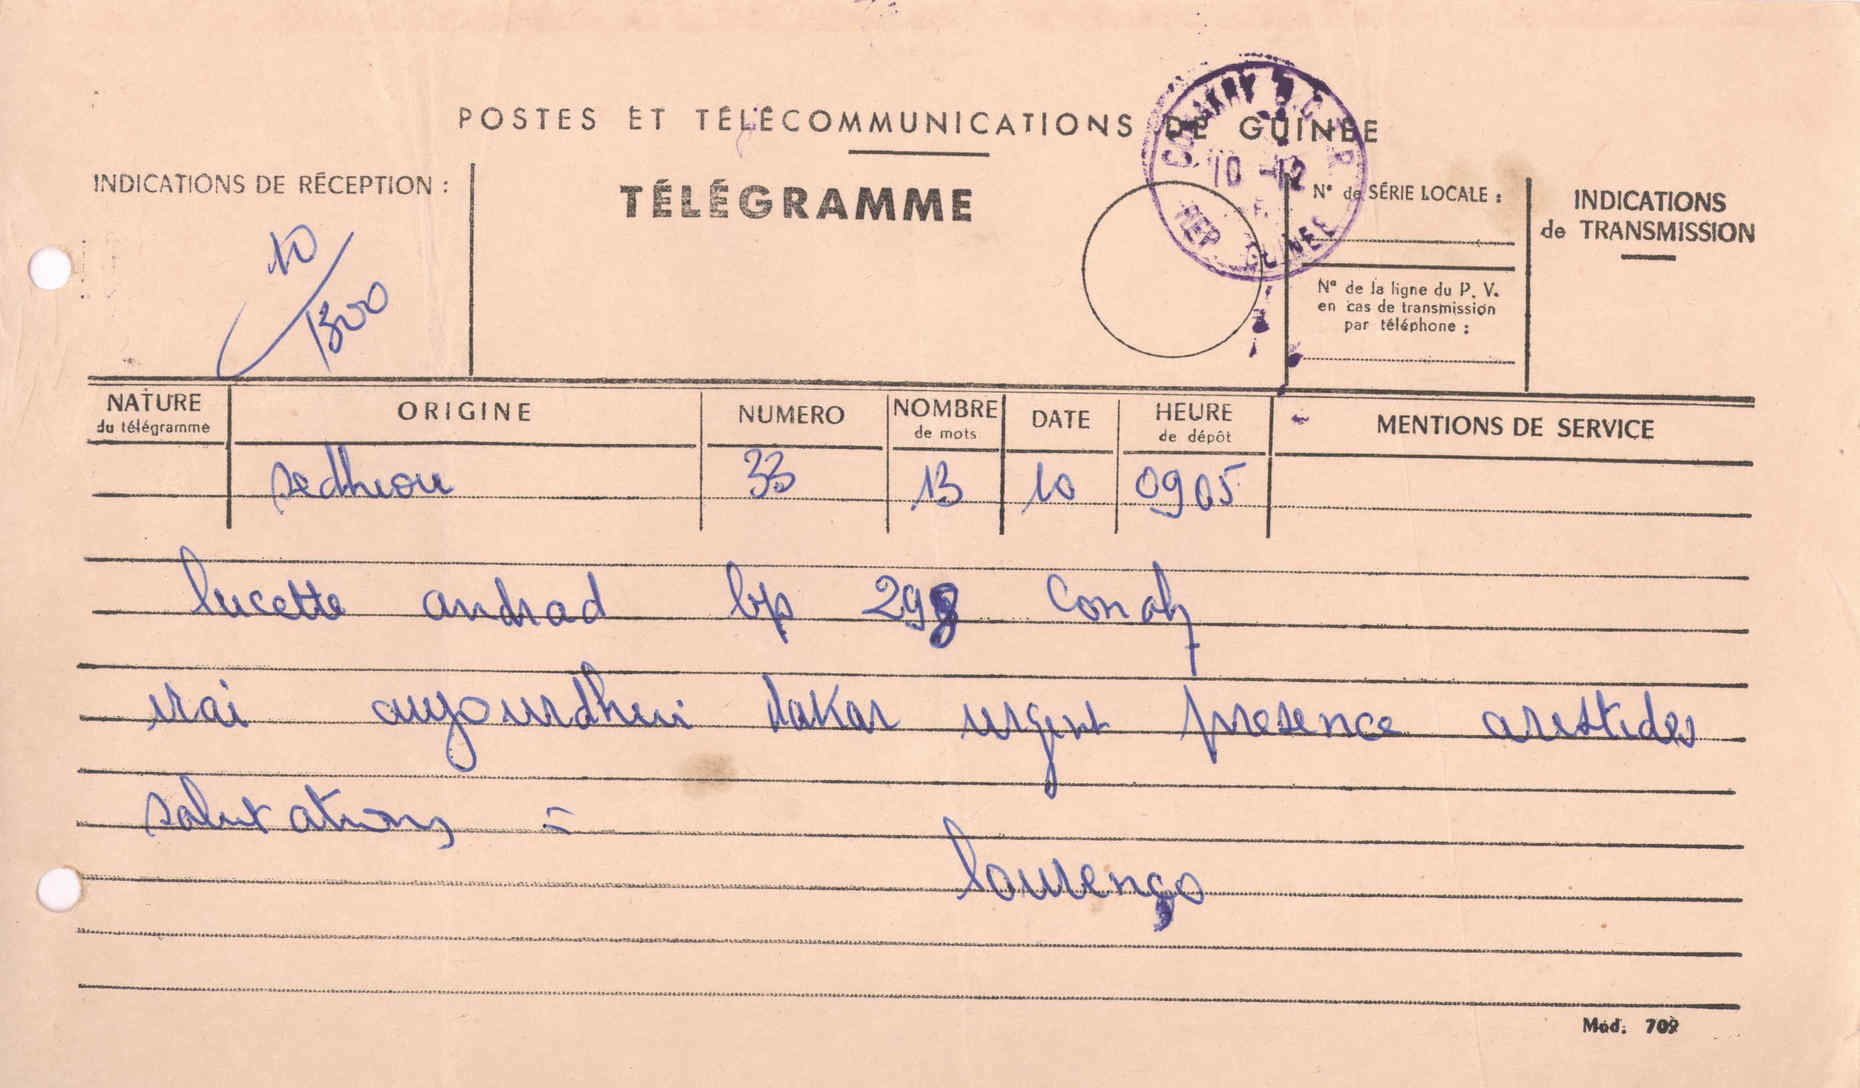 POSTES ET TÉLÉCOMMUNICATIONS DE GUINÉE
INDICATIONS DE RÉCEPTION :
TÉLÉGRAMME
CONAKRY
10 -12
REP GUINEE
N° de SÉRIE LOCALE :
N° de la ligne du P. V.
en cas de transmission
par téléphone :
INDICATIONS
de TRANSMISSION
10
1300
NATURE
du télégramme
ORIGINE
NUMERO
NOMBRE
de mots
DATE
HEURE
de dépôt
MENTIONS DE SERVICE
sedhiou 33 13 10 0905
lucette andrad bp 298 Conaky
irai aujourdhui dakar urgent presence aristides
salutations =
lourenço
Mod. 709